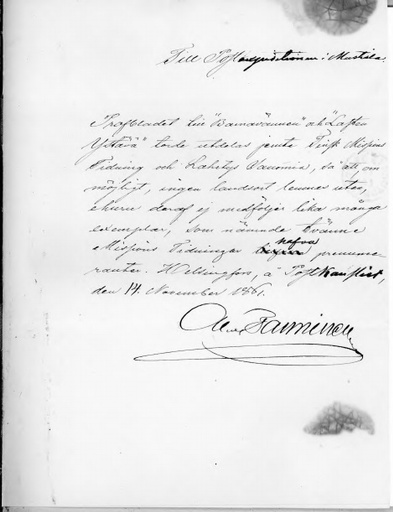 Till Postexpeditionen i Mustiala.
Profbladet till "Barnavännen" och "Lasten
Ystävä" torde utdelas jemte Finsk Missions
Tidning och Lähetys Sanomia, så att, om
möjligt, ingen landsort lemnas utan,
ehuru deraf ej medföljer lika många
exemplar, som nämnde tvänne
Missions Tidningar hafva prenume-
ranter. Helsingfors, å Post
den 14 November 1861.
Alex